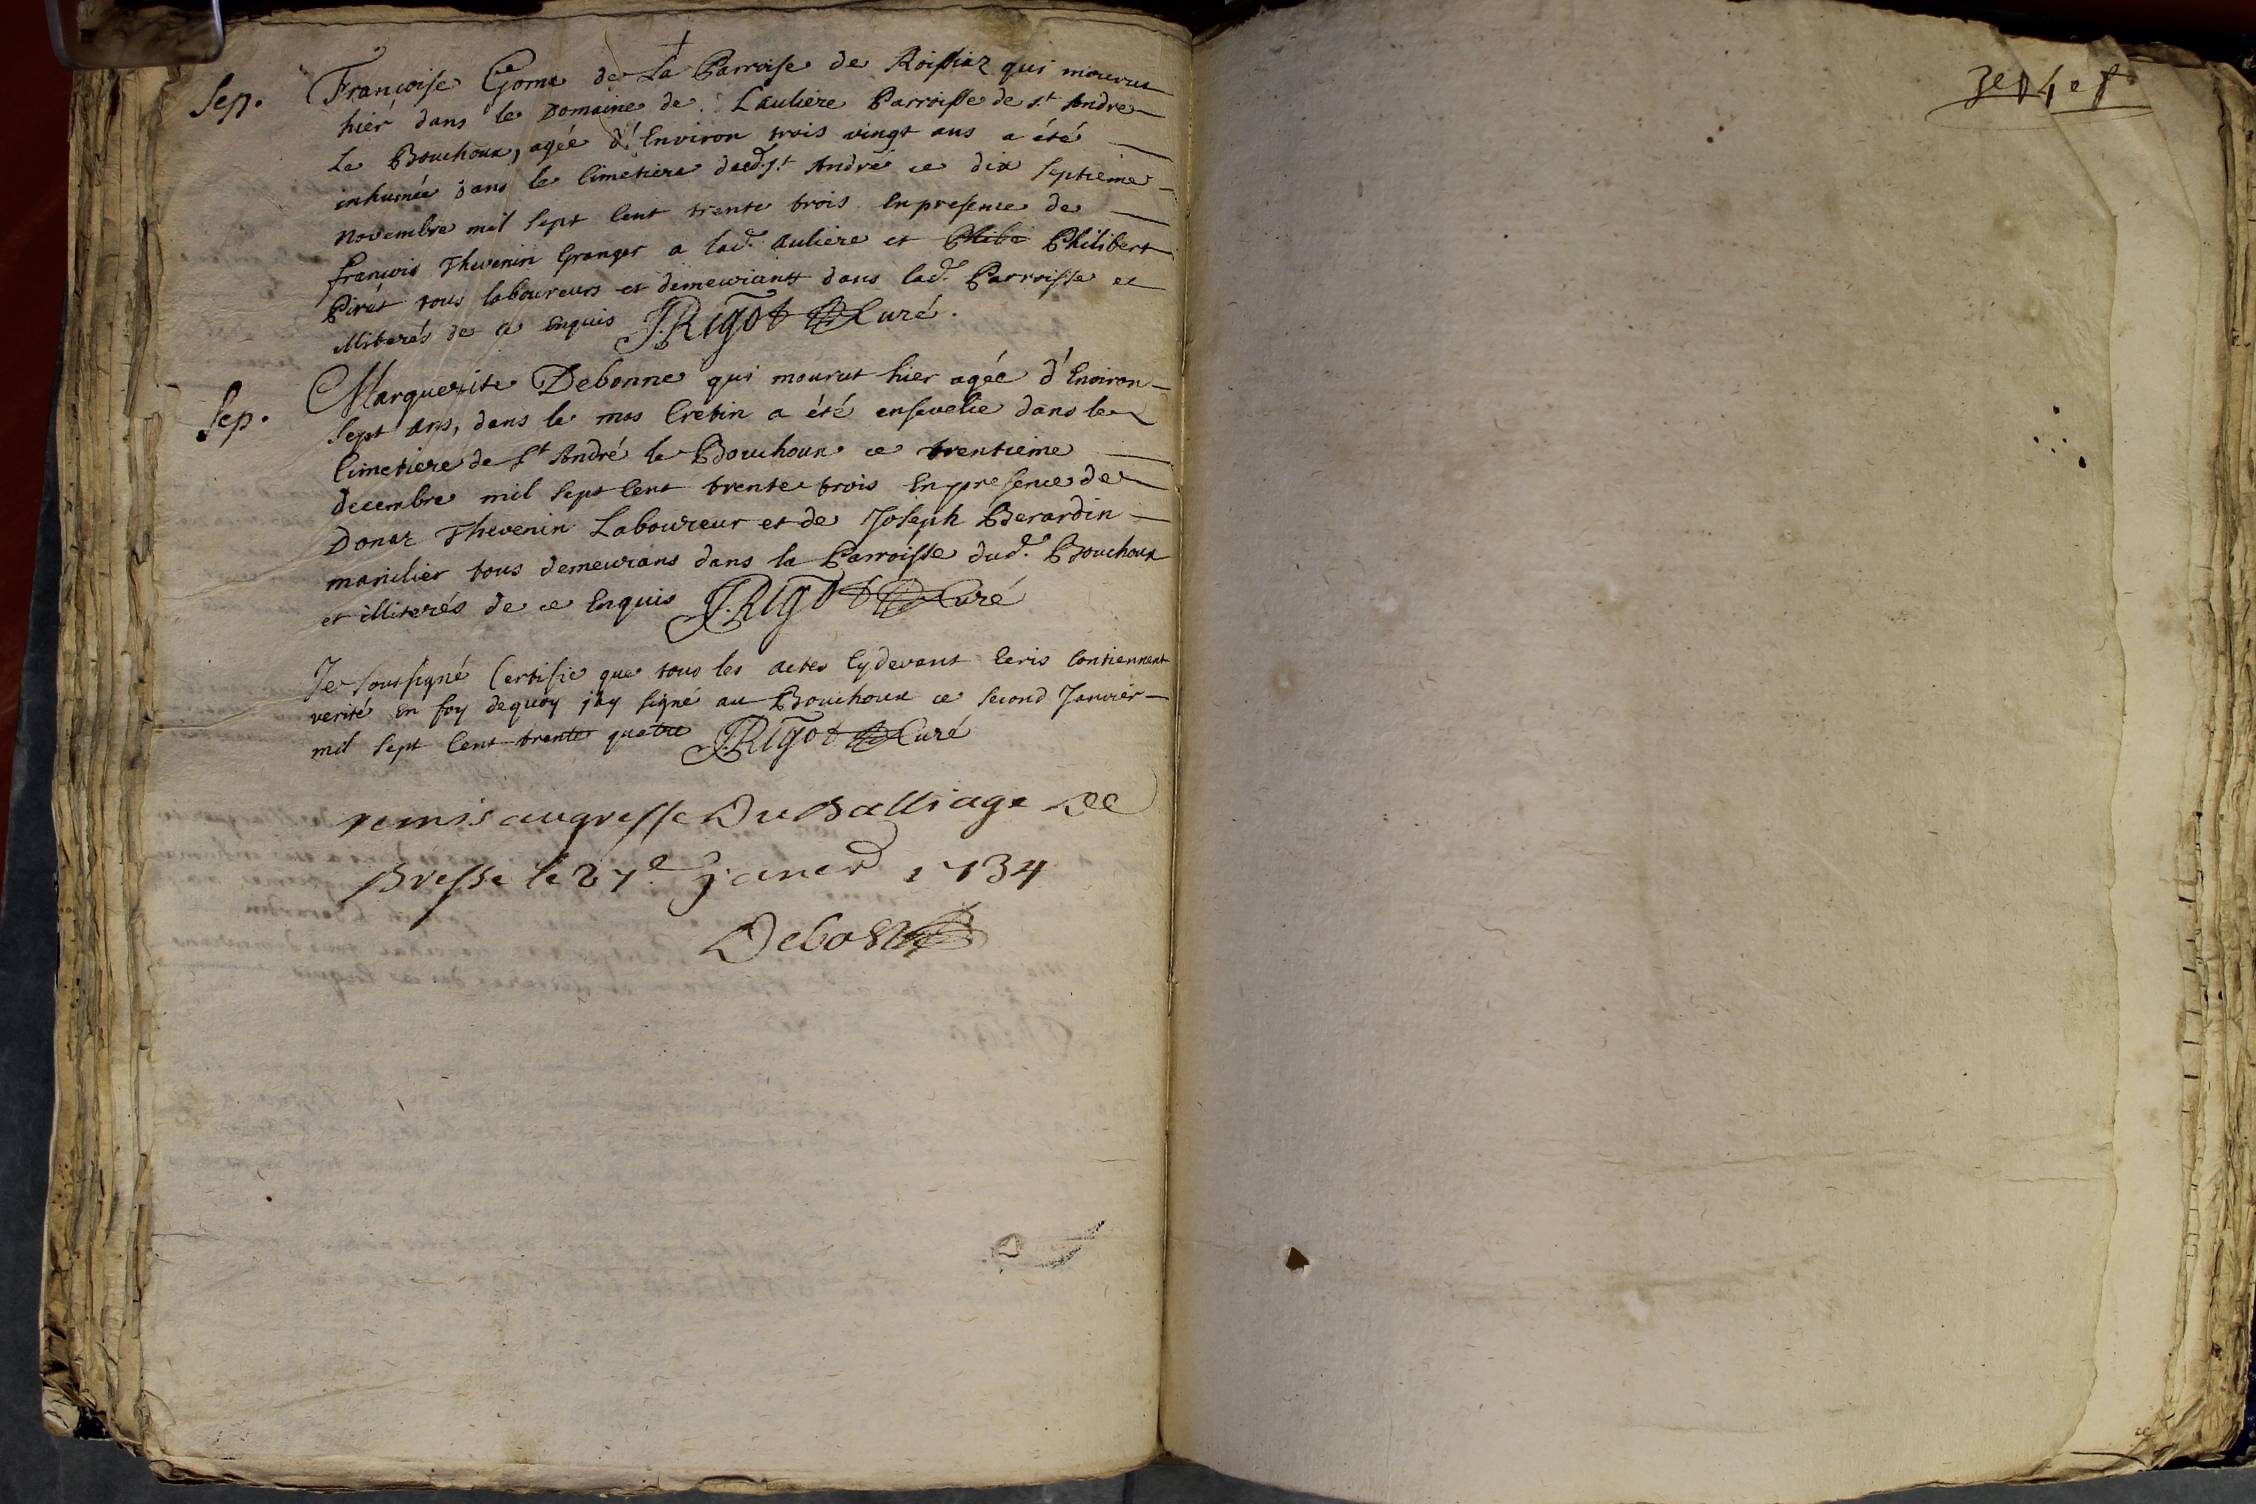 Sep. Françoise Gome de La Parroise de Roissiaz qui mourut
hier dans le Domaine de Lauliere Parroisse de st Andre
Le Bouchoux, agée d'Environ trois vingt ans a été
inhumée dans le Cimetiere dud. st André ce dix septieme
novembre mil sept Cent trente trois En presence de
françois Thevenin Granger a lad. auliere et Philibert
Pirat tous laboureurs et demeurants dans lad. Parroisse et
illiterés de ce Enquis J. Rigot Curé.
Sep. Marguerite Debonne qui mourut hier agée d'Environ
sept ans, dans le mas Cretin a été ensevelie dans le
Cimetiere de st André le Bouchoux ce trentieme
decembre mil sept Cent trente trois En presence de
Donat Thevenin Laboureur et de Joseph Berardin
marillier tous demeurans dans la Parroisse dud. Bouchoux
et illiterés de ce Enquis J. Rigot Curé
Je soussigné Certifie que tous les actes Cydevant Ecris Contiennent
verité En foy dequoy jay signé au Bouchoux ce second Janvier
mil sept Cent trente quatre J. Rigot Curé
remis au greffe Du Balliage De
Bresse le 27e janer 1734
Debost